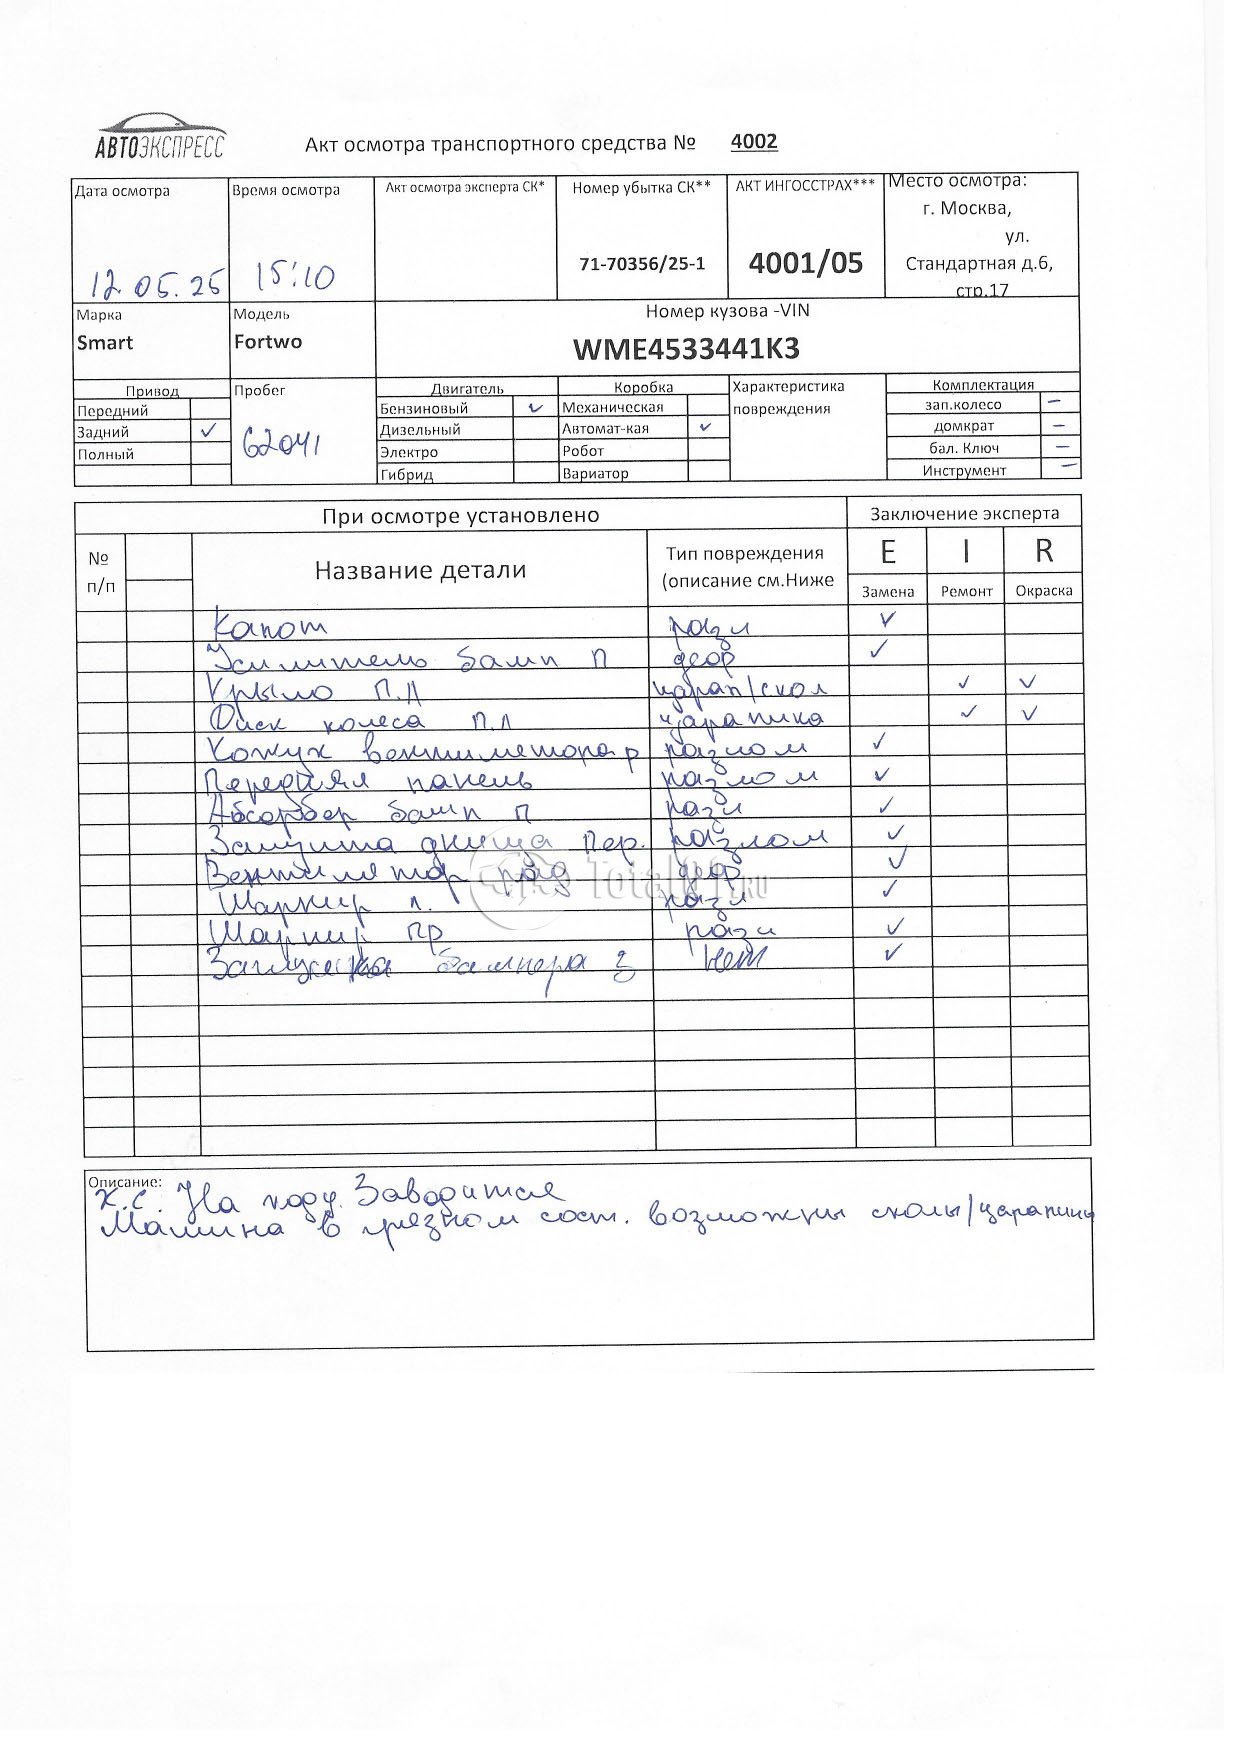 АВТОЭКСПРЕСС
Акт осмотра транспортного средства № 4002
Дата осмотра
12.05.25
Время осмотра
15:10
Акт осмотра эксперта СК*
Номер убытка СК**
71-70356/25-1
АКТ ИНГОССТРАХ***
4001/05
Место осмотра:
г. Москва,
ул.
Стандартная д.6,
стр.17
Марка
Smart
Модель
Fortwo
Номер кузова -VIN
WME4533441K3
Привод
Передний
Задний ✓
Полный
Пробег
62041
Двигатель
Бензиновый ✓
Дизельный
Электро
Гибрид
Коробка
Механическая
Автомат-кая ✓
Робот
Вариатор
Характеристика
повреждения
Комплектация
зап.колесо –
домкрат –
бал. Ключ –
Инструмент –
При осмотре установлено
Заключение эксперта
№
п/п
Название детали
Тип повреждения
(описание см.Ниже
E I R
Замена Ремонт Окраска
Капот разл ✓
Усилитель бамп П дефор ✓
Крыло П.Л царап/скол ✓ ✓
Диск колеса П.Л царапина ✓ ✓
Кожух вентилятора р разлом ✓
Передняя панель разлом ✓
Абсорбер бамп П разл ✓
Защита днища пер. разлом ✓
Вентилятор рад дефор ✓
Шарнир л. разл ✓
Шарнир пр разл ✓
Заглушка бампера з нет ✓
TotalO1.RU
Описание:
Х.С. На ходу. Заводится
Машина в грязном сост. возможны сколы/царапины